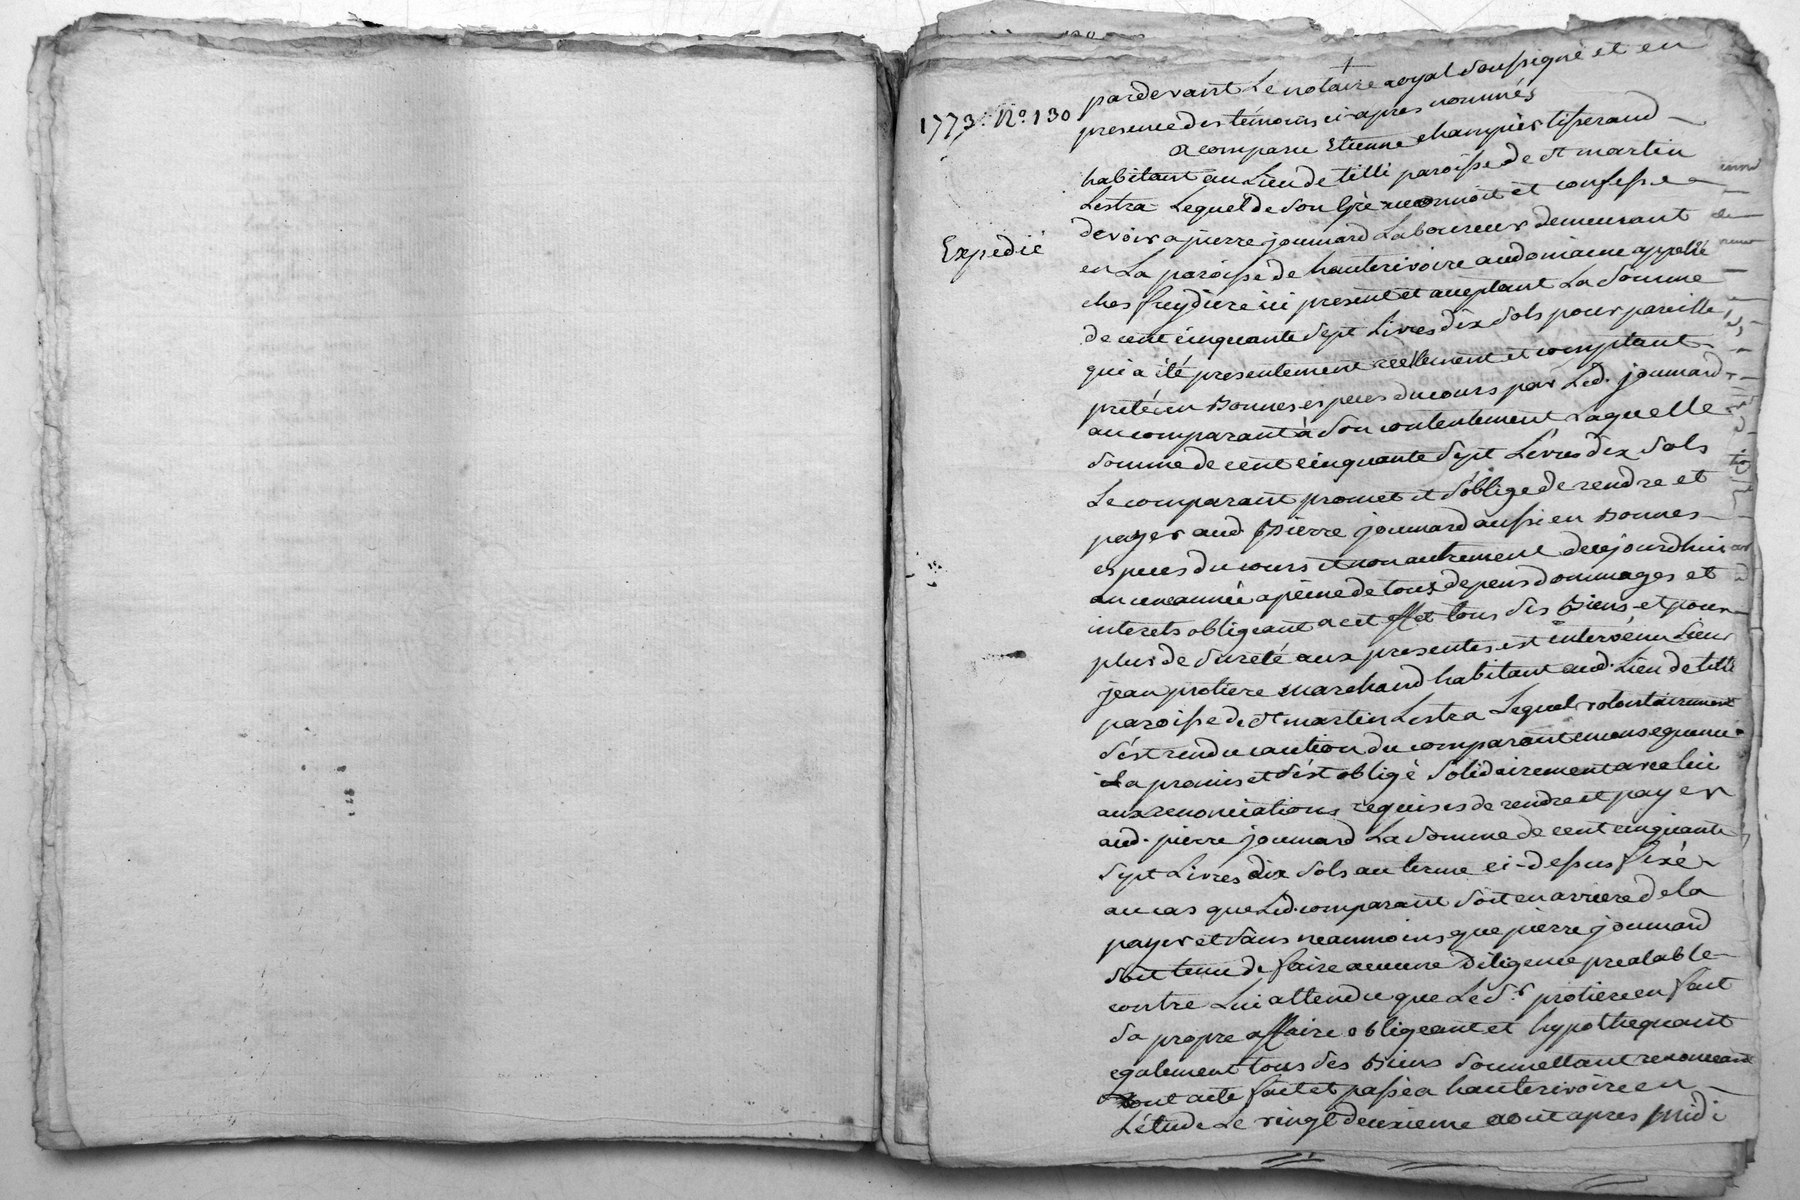 1773. No. 130
Expedié
pardevant Le notaire royal soussigné et en
presence des témoins ci apres nommés
a comparu Etienne champier tisserand
habitant au Lieu de tilli paroisse de st martin
Lestra Lequel de son gré reconnoit et confesse
devoir a pierre joumard Laboureur demeurant
en La paroisse de hauterivoire au domaine appellé
ches freydiere ici present et acceptant La somme
de cent cinquante sept Livres dix sols pour pareille
qui a été presentement réellement et comptant
preté en bonnes especes du cours par Led. joumard
au comparant à son contentement Laquelle
somme de cent cinquante sept Livres dix sols
Le comparant promet et s'oblige de rendre et
payer aud. pierre joumard aussi en bonnes
especes du cours et non autrement de cejourdhui
en une année a peine de tous depens dommages et
interets obligeant a cet effet tous ses biens et pour
plus de sureté aux presentes est intervenu sieur
jean protiere marchand habitant aud. Lieu de tilli
paroisse de st martin Lestra Lequel volontairement
s'est rendu caution du comparant en consequence
il a promis et s'est obligé solidairement avec lui
aux renonciations requises de rendre et payer
aud. pierre joumard La somme de cent cinquante
sept Livres dix sols au terme ci-dessus fixé
au cas que Led. comparant soit en arriere de la
payer et sans neanmoins que pierre joumard
soit tenu de faire aucune diligence prealable
contre Lui attendu que Le sr protiere en fait
sa propre affaire obligeant et hypothequant
egalement tous ses biens soumettant renonceant
dont acte fait et passé a hauterivoire en
L'étude Le vingt deuxieme aout apres midi